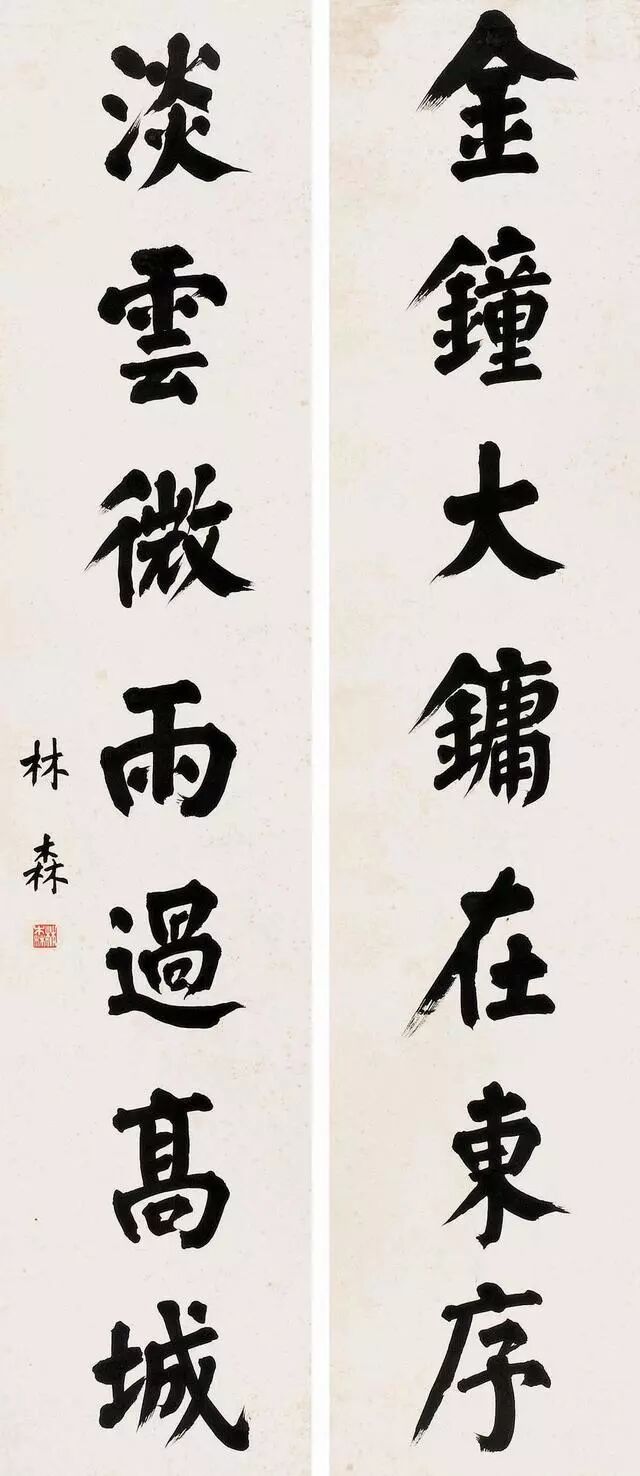 金鐘大鏞在東序
淡雲微雨過高城
林森